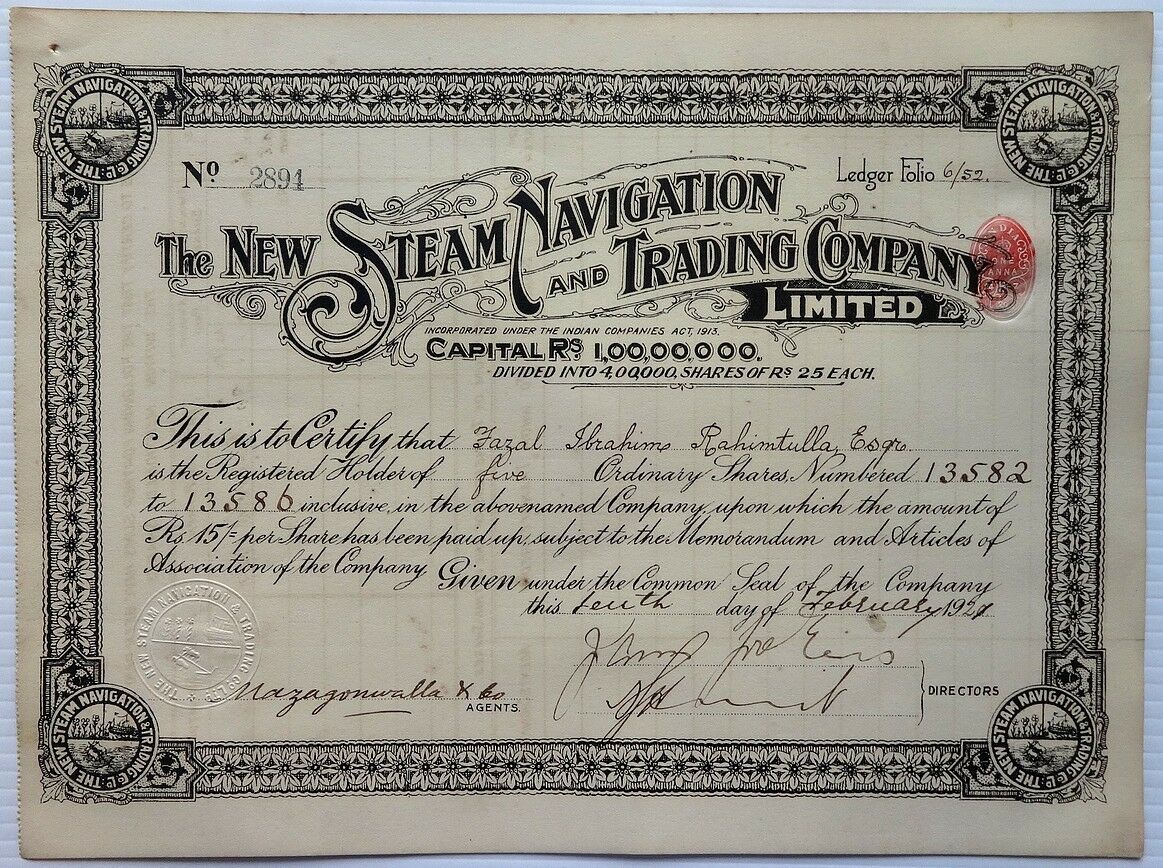 THE NEW STEAM NAVIGATION & TRADING Co. Ld.
THE NEW STEAM NAVIGATION & TRADING Co. Ld.
No 2894
Ledger Folio 6/52.
The New Steam Navigation
and Trading Company
Limited
INDIA
ONE
ANNA
INCORPORATED UNDER THE INDIAN COMPANIES ACT, 1913.
CAPITAL Rs 1,00,00,000.
DIVIDED INTO 4,00,000, SHARES OF Rs 25 EACH.
This is to Certify that Fazal Ibrahim Rahimtulla, Esqr.
is the Registered Holder of five Ordinary Shares, Numbered 13582
to 13586 inclusive, in the abovenamed Company, upon which the amount of
Rs 15/- per Share has been paid up, subject to the Memorandum and Articles of
Association of the Company Given under the Common Seal of the Company
this tenth day of February 1921
THE NEW STEAM NAVIGATION & TRADING Co. LTD.
Mazagonwalla & Co
AGENTS.
DIRECTORS
THE NEW STEAM NAVIGATION & TRADING Co. Ld.
THE NEW STEAM NAVIGATION & TRADING Co. Ld.